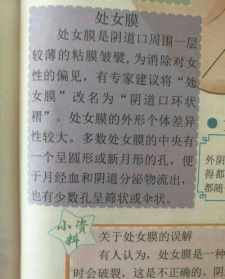 处女膜
处女膜是阴道口周围一层
较薄的粘膜皱襞，为消除对女
性的偏见，有专家建议将“处
女膜”改名为“阴道口环状
褶”。处女膜的外形个体差异
性较大。多数处女膜的中央有
一个呈圆形或新月形的孔，便
于月经血和阴道分泌物流出，
也有少数孔呈筛状或伞状。
外阴
得都
都随
小资料
关于处女膜的误解
有人认为，处女膜是一种
时会破裂，这是不正确的。阴